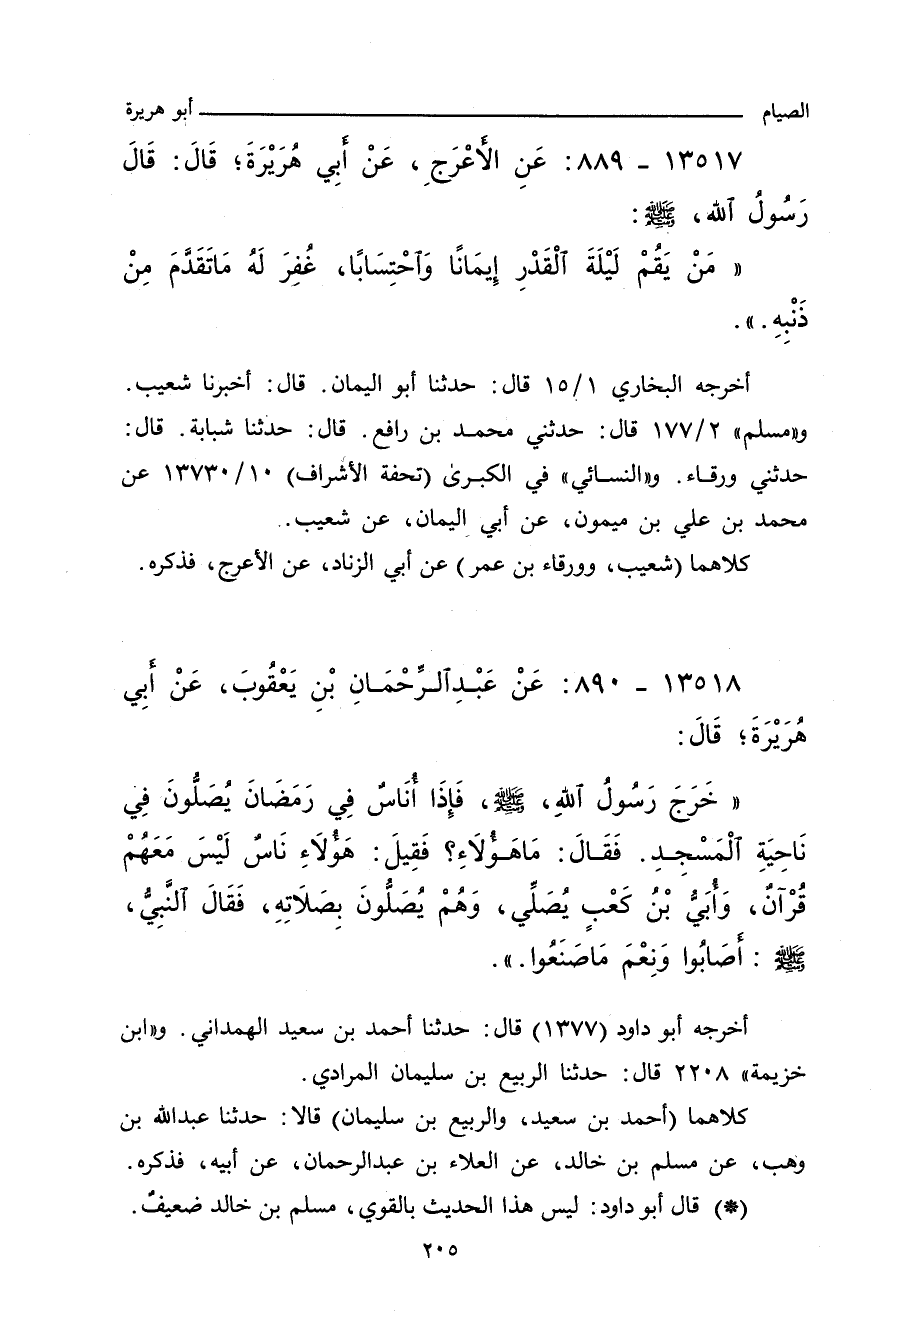 الصيام أبو هريرة
١٣٥١٧ - ٨٨٩: عَنِ الأَعْرَجِ، عَنْ أَبِي هُرَيْرَةَ؛ قَالَ: قَالَ
رَسُولُ ٱللهِ، ﷺ:
« مَنْ يَقُمْ لَيْلَةَ ٱلْقَدْرِ إِيمَانًا وَٱحْتِسَابًا، غُفِرَ لَهُ مَاتَقَدَّمَ مِنْ
ذَنْبِهِ.».
أخرجه البخاري ١٥/١ قال: حدثنا أبو اليمان. قال: أخبرنا شعيب.
و«مسلم» ١٧٧/٢ قال: حدثني محمد بن رافع. قال: حدثنا شبابة. قال:
حدثني ورقاء. و«النسائي» في الكبرىٰ (تحفة الأشراف) ١٣٧٣٠/١٠ عن
محمد بن علي بن ميمون، عن أبي اليمان، عن شعيب..
كلاهما (شعيب، وورقاء بن عمر) عن أبي الزناد، عن الأعرج، فذكره.
١٣٥١٨ - ٨٩٠: عَنْ عَبْدِٱلرَّحْمَانِ بْنِ يَعْقُوبَ، عَنْ أَبِي
هُرَيْرَةَ؛ قَالَ:
« خَرَجَ رَسُولُ ٱللهِ، ﷺ، فَإِذَا أُنَاسٌ فِي رَمَضَانَ يُصَلُّونَ فِي
نَاحِيَةِ ٱلْمَسْجِدِ. فَقَالَ: مَاهَؤُلَاءِ؟ فَقِيلَ: هَؤُلَاءِ نَاسٌ لَيْسَ مَعَهُمْ
قُرْآنٌ، وَأُبَيُّ بْنُ كَعْبٍ يُصَلِّي، وَهُمْ يُصَلُّونَ بِصَلَاتِهِ، فَقَالَ ٱلنَّبِيُّ،
ﷺ : أَصَابُوا وَنِعْمَ مَاصَنَعُوا.».
أخرجه أبو داود (١٣٧٧) قال: حدثنا أحمد بن سعيد الهمداني. و«ابن
خزيمة» ٢٢٠٨ قال: حدثنا الربيع بن سليمان المرادي.
كلاهما (أحمد بن سعيد، والربيع بن سليمان) قالا: حدثنا عبدالله بن
وهب، عن مسلم بن خالد، عن العلاء بن عبدالرحمان، عن أبيه، فذكره.
(*) قال أبو داود: ليس هذا الحديث بالقوي، مسلم بن خالد ضعيفٌ.
٢٠٥